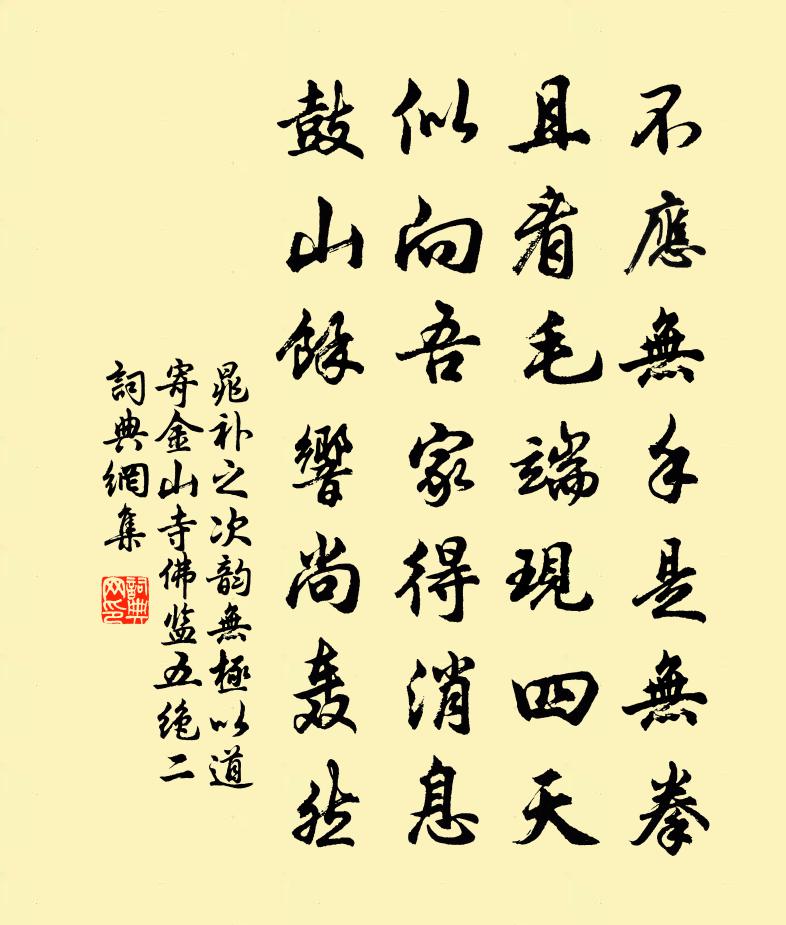 不應無手是無拳
且看毛端現四天
似向吾家得消息
鼓山餘響尚轰然
晁补之次韵無極以道
寄金山寺佛监五绝二
詞典網集
詞典網印